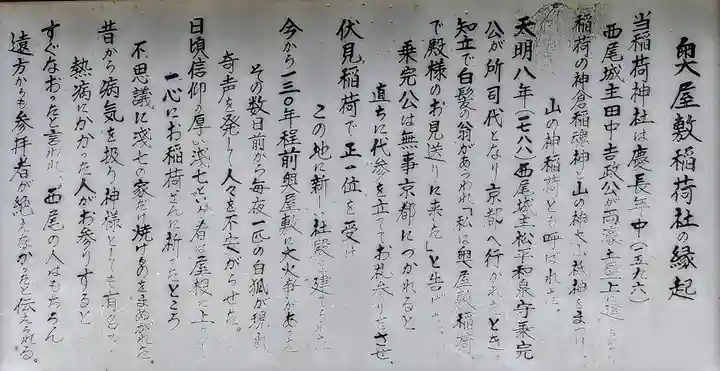 奥屋敷稲荷社の縁起
当稲荷神社は慶長年中(一五九六)
西尾城主田中吉政公が両濠土塁上に造られ
稲荷の神倉稲魂神と山の神大山祇神をまつり、
山の神稲荷とも呼ばれた。
天明八年(一七八八)西尾城主松平和泉守乗完
公が所司代となり京都へ行かれるとき
知立で白髪の翁があらわれ「私は奥屋敷稲荷
で殿様のお見送りに来た」と告げ
乗完公は無事京都につかれると
直ちに代参を立ててお礼参りをさせ、
伏見稲荷で正一位を受け
この地に新しい社殿を建てられた
今から一三〇年程前奥屋敷に大火事があった
その数日前から毎夜一匹の白狐が現れ
奇声を発して人々を不安がらせた。
日頃信仰の厚い浅七という者は屋根に上って
一心にお稲荷さんに祈ったところ
不思議に浅七の家だけ焼けるのをまぬがれた。
昔から病気を扱う神様としても有名で
熱病にかかった人がお参りすると
すぐなおったと言われ、西尾の人はもちろん
遠方からも参拝者が絶えなかったと伝えられる。